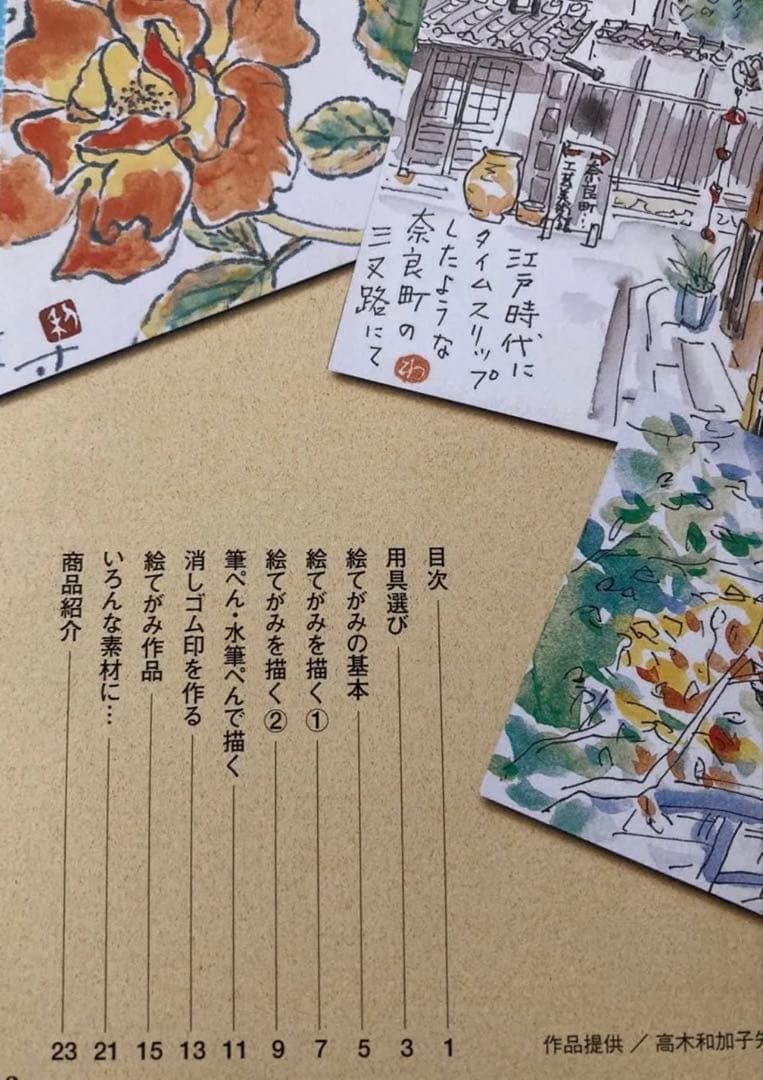 奈良町
工芸美術館
江戸時代に
タイムスリップ
したような
奈良町の
三叉路にて
目次 1
用具選び 3
絵てがみの基本 5
絵てがみを描く① 7
絵てがみを描く② 9
筆ぺん・水筆ぺんで描く 11
消しゴム印を作る 13
絵てがみ作品 15
いろんな素材に… 21
商品紹介 23
作品提供／高木和加子